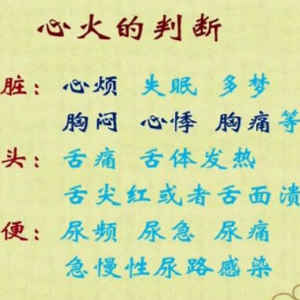 心火的判断
脏：心烦 失眠 多梦
胸闷 心悸 胸痛等
头：舌痛 舌体发热
舌尖红或者舌面溃
便：尿频 尿急 尿痛
急慢性尿路感染